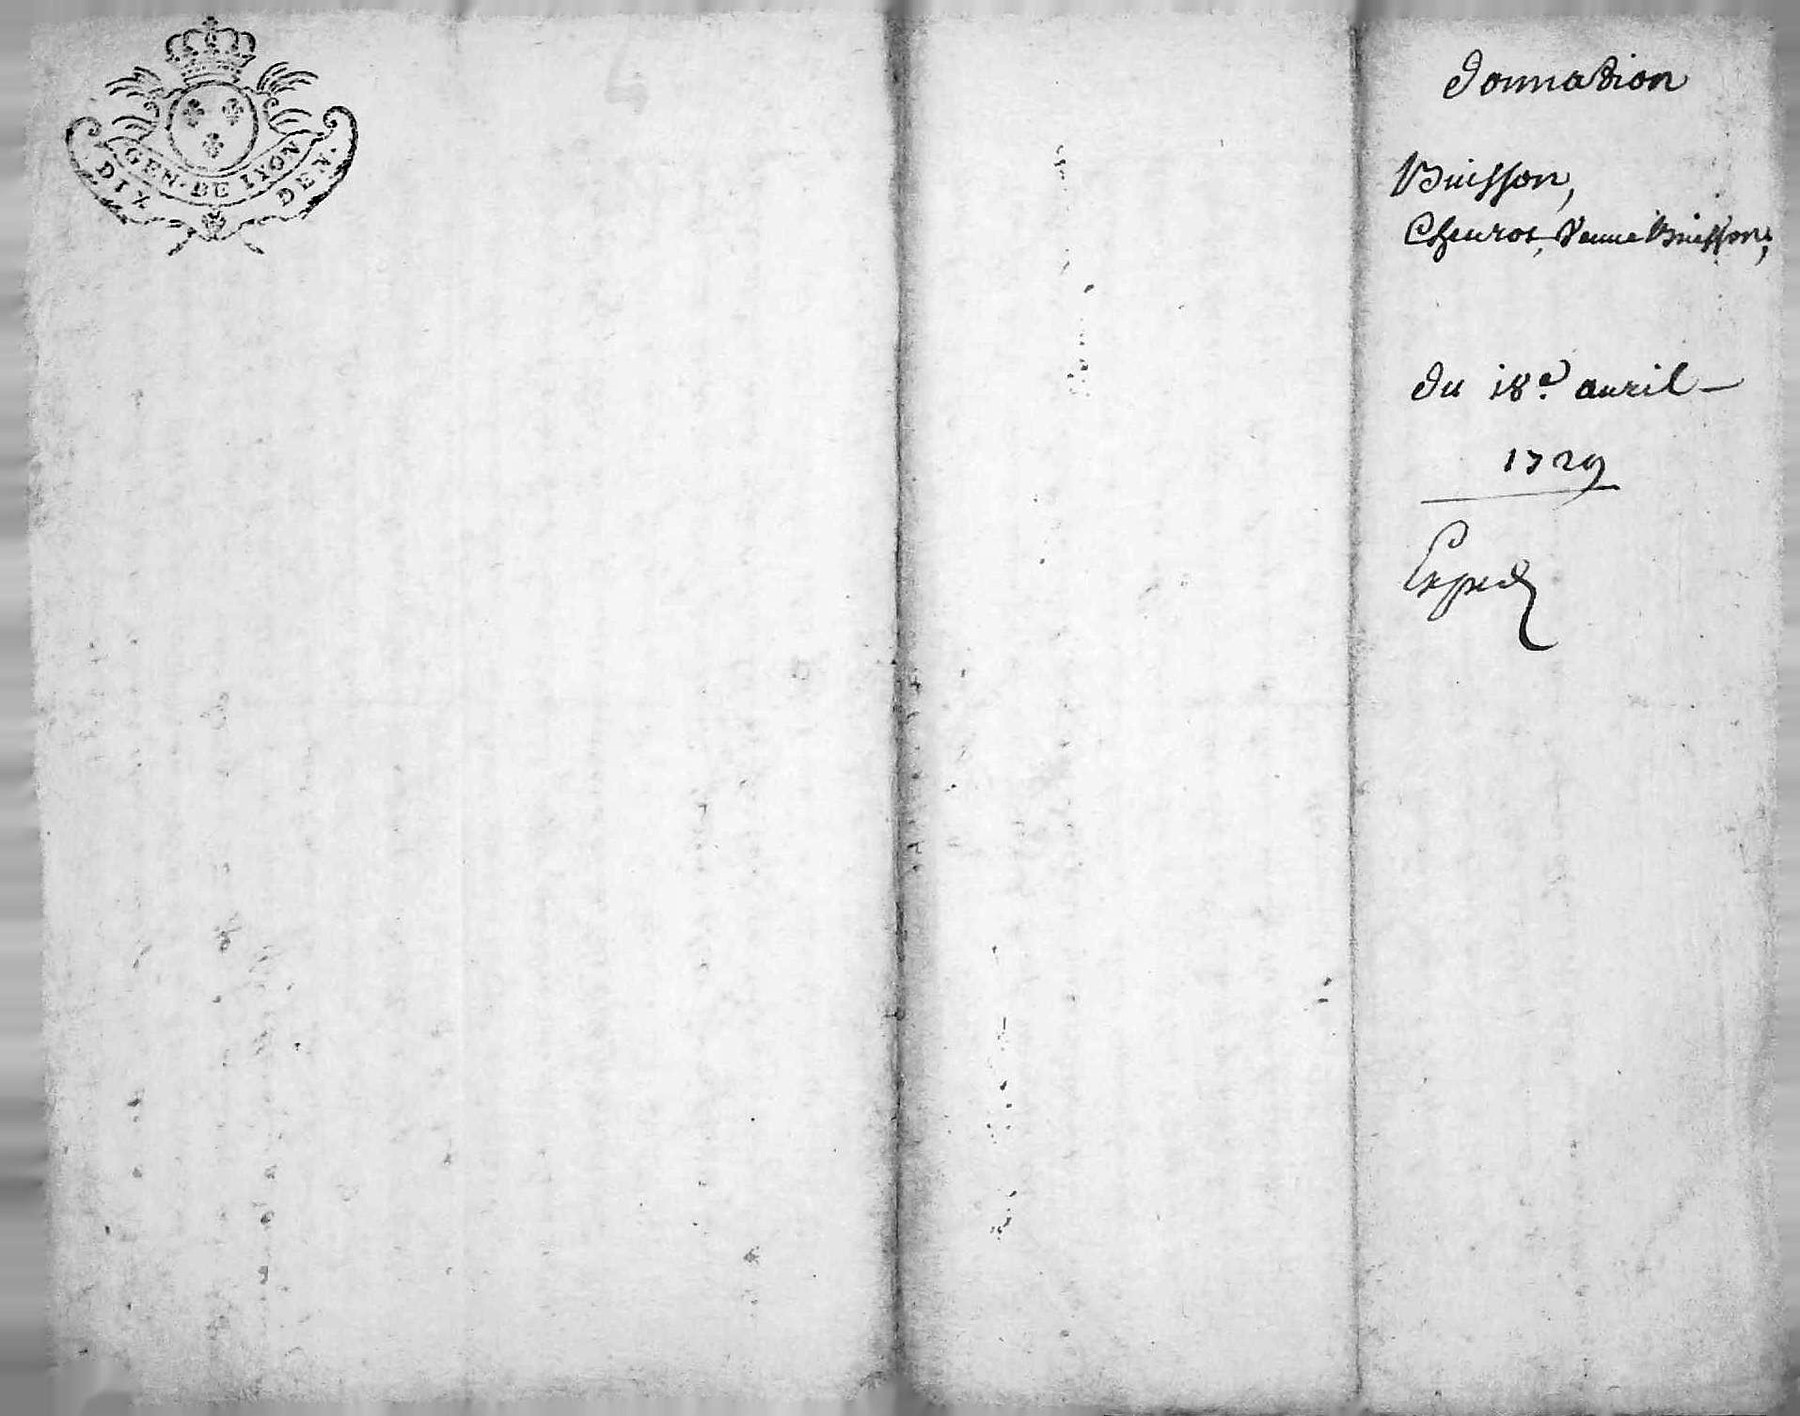 GEN. DE LYON
DIX DEN.
donnation
Buisson,
Cheurot, Veuue Buisson;
du 18e. auril –
1729
Exped